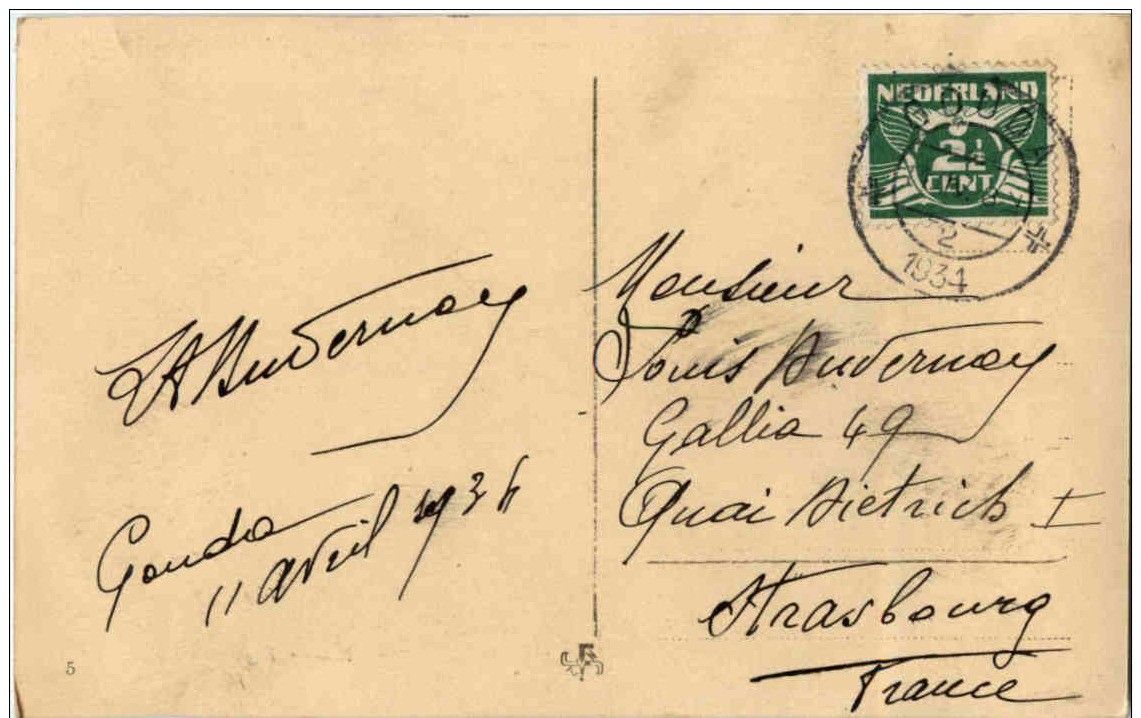 NEDERLAND
2½
CENT
GOUDA
2
1934
Monsieur
Louis Audernay
Gallia 49
Quai Dietrich I
Strasbourg
France
Audernay
Gouda
11 avril 1934
5